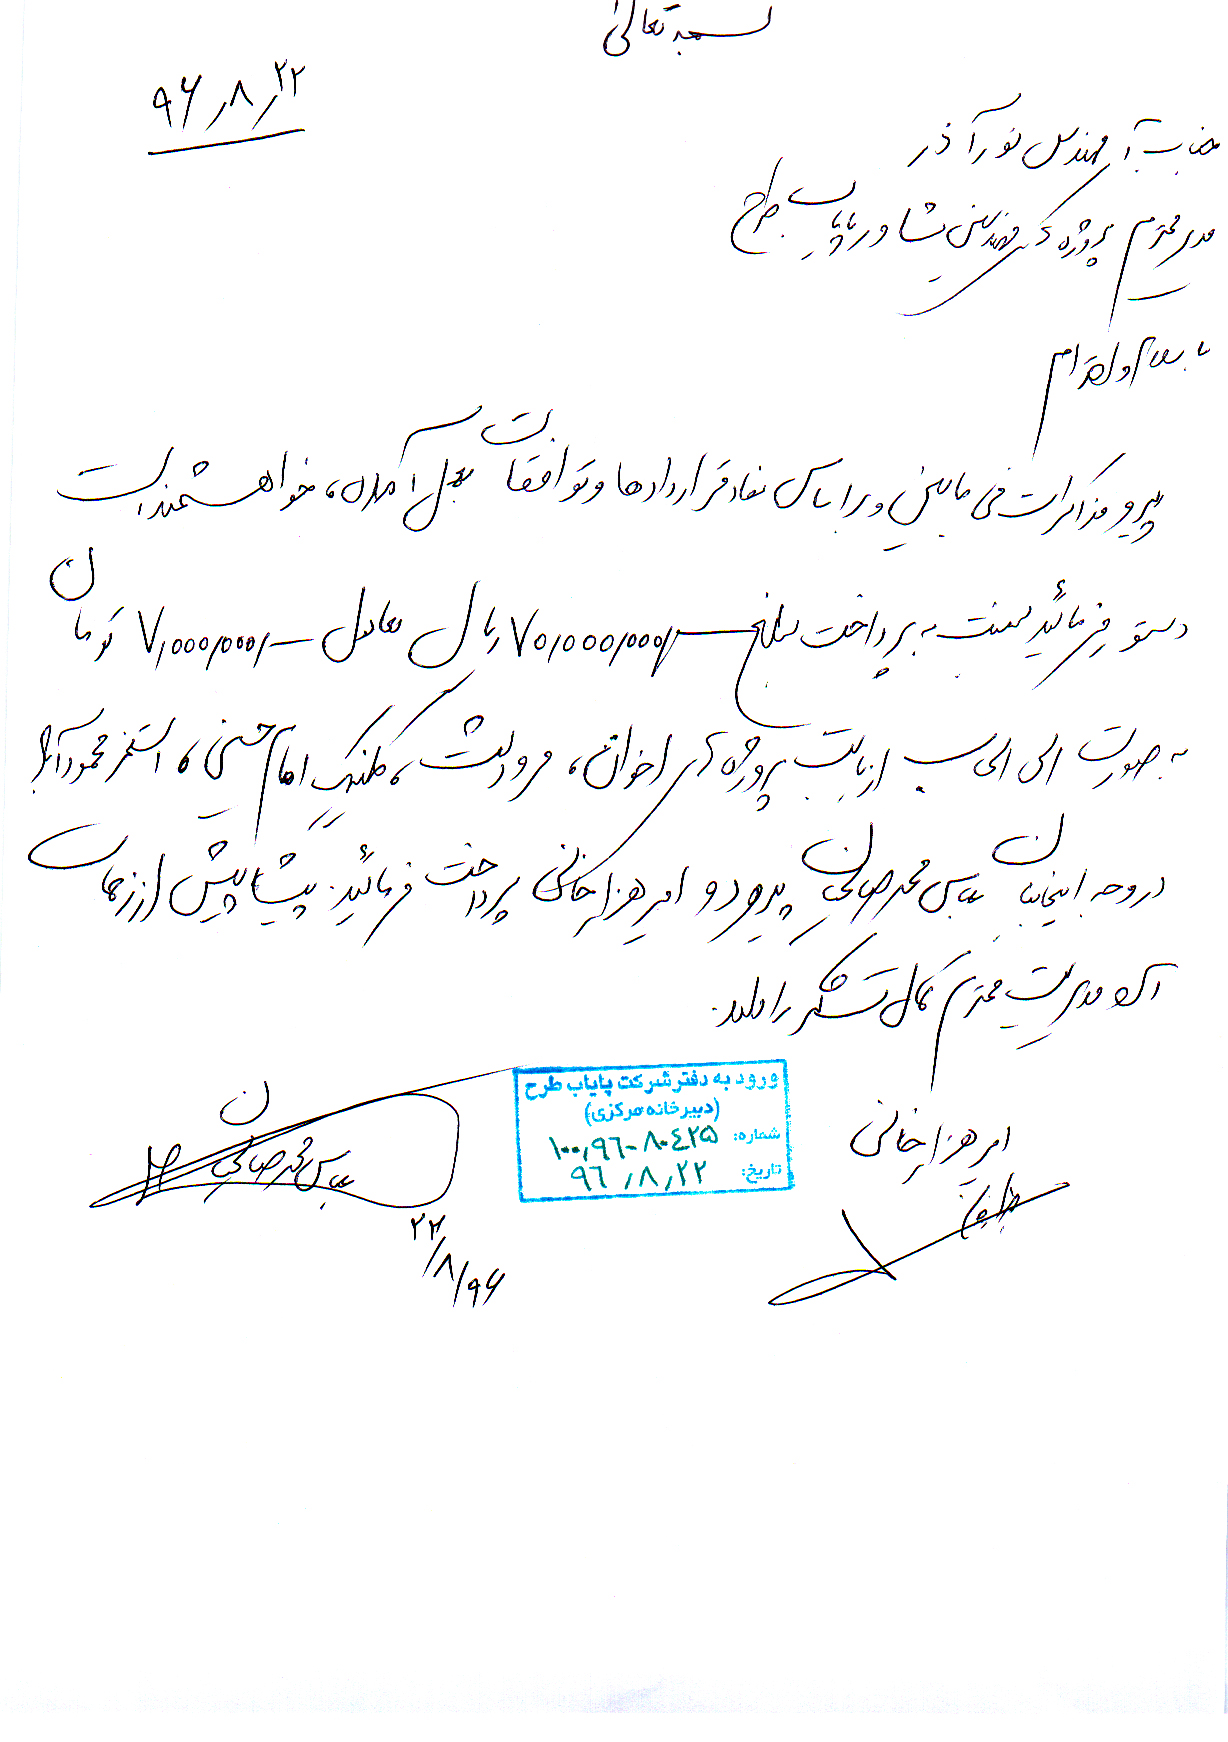 بسمه تعالی
۹۶/۸/۲۲
جناب آ مهندس نورآذر
مدیر محترم پروژه مهندسین مشاور پایاب طرح
با سلام و احترام
پیرو مذاکرات فی مابین و بر اساس مفاد قراردادها و توافقات بعمل آمده، خواهشمند است
دستور فرمائید نسبت به پرداخت مبلغ ۷۰,۰۰۰,۰۰۰/ ریال معادل ۷,۰۰۰,۰۰۰/ تومان
به صورت الی الحساب از بابت پروژه اخوان، مرودشت، امام خمینی، استخر محمودآباد
در وجه اینجانبان عباس محمدصالحیان و امیر هزارخانی پرداخت فرمائید. پیشاپیش از زحمات
آن مدیریت محترم کمال تشکر را داریم.
ورود به دفتر شرکت پایاب طرح
(دبیرخانه مرکزی)
شماره: ۱۰۰/۹۶-۸۰۴۲۵
تاریخ: ۹۶/۸/۲۲
امیر هزارخانی
عباس محمدصالحیان
۹۶/۸/۲۲